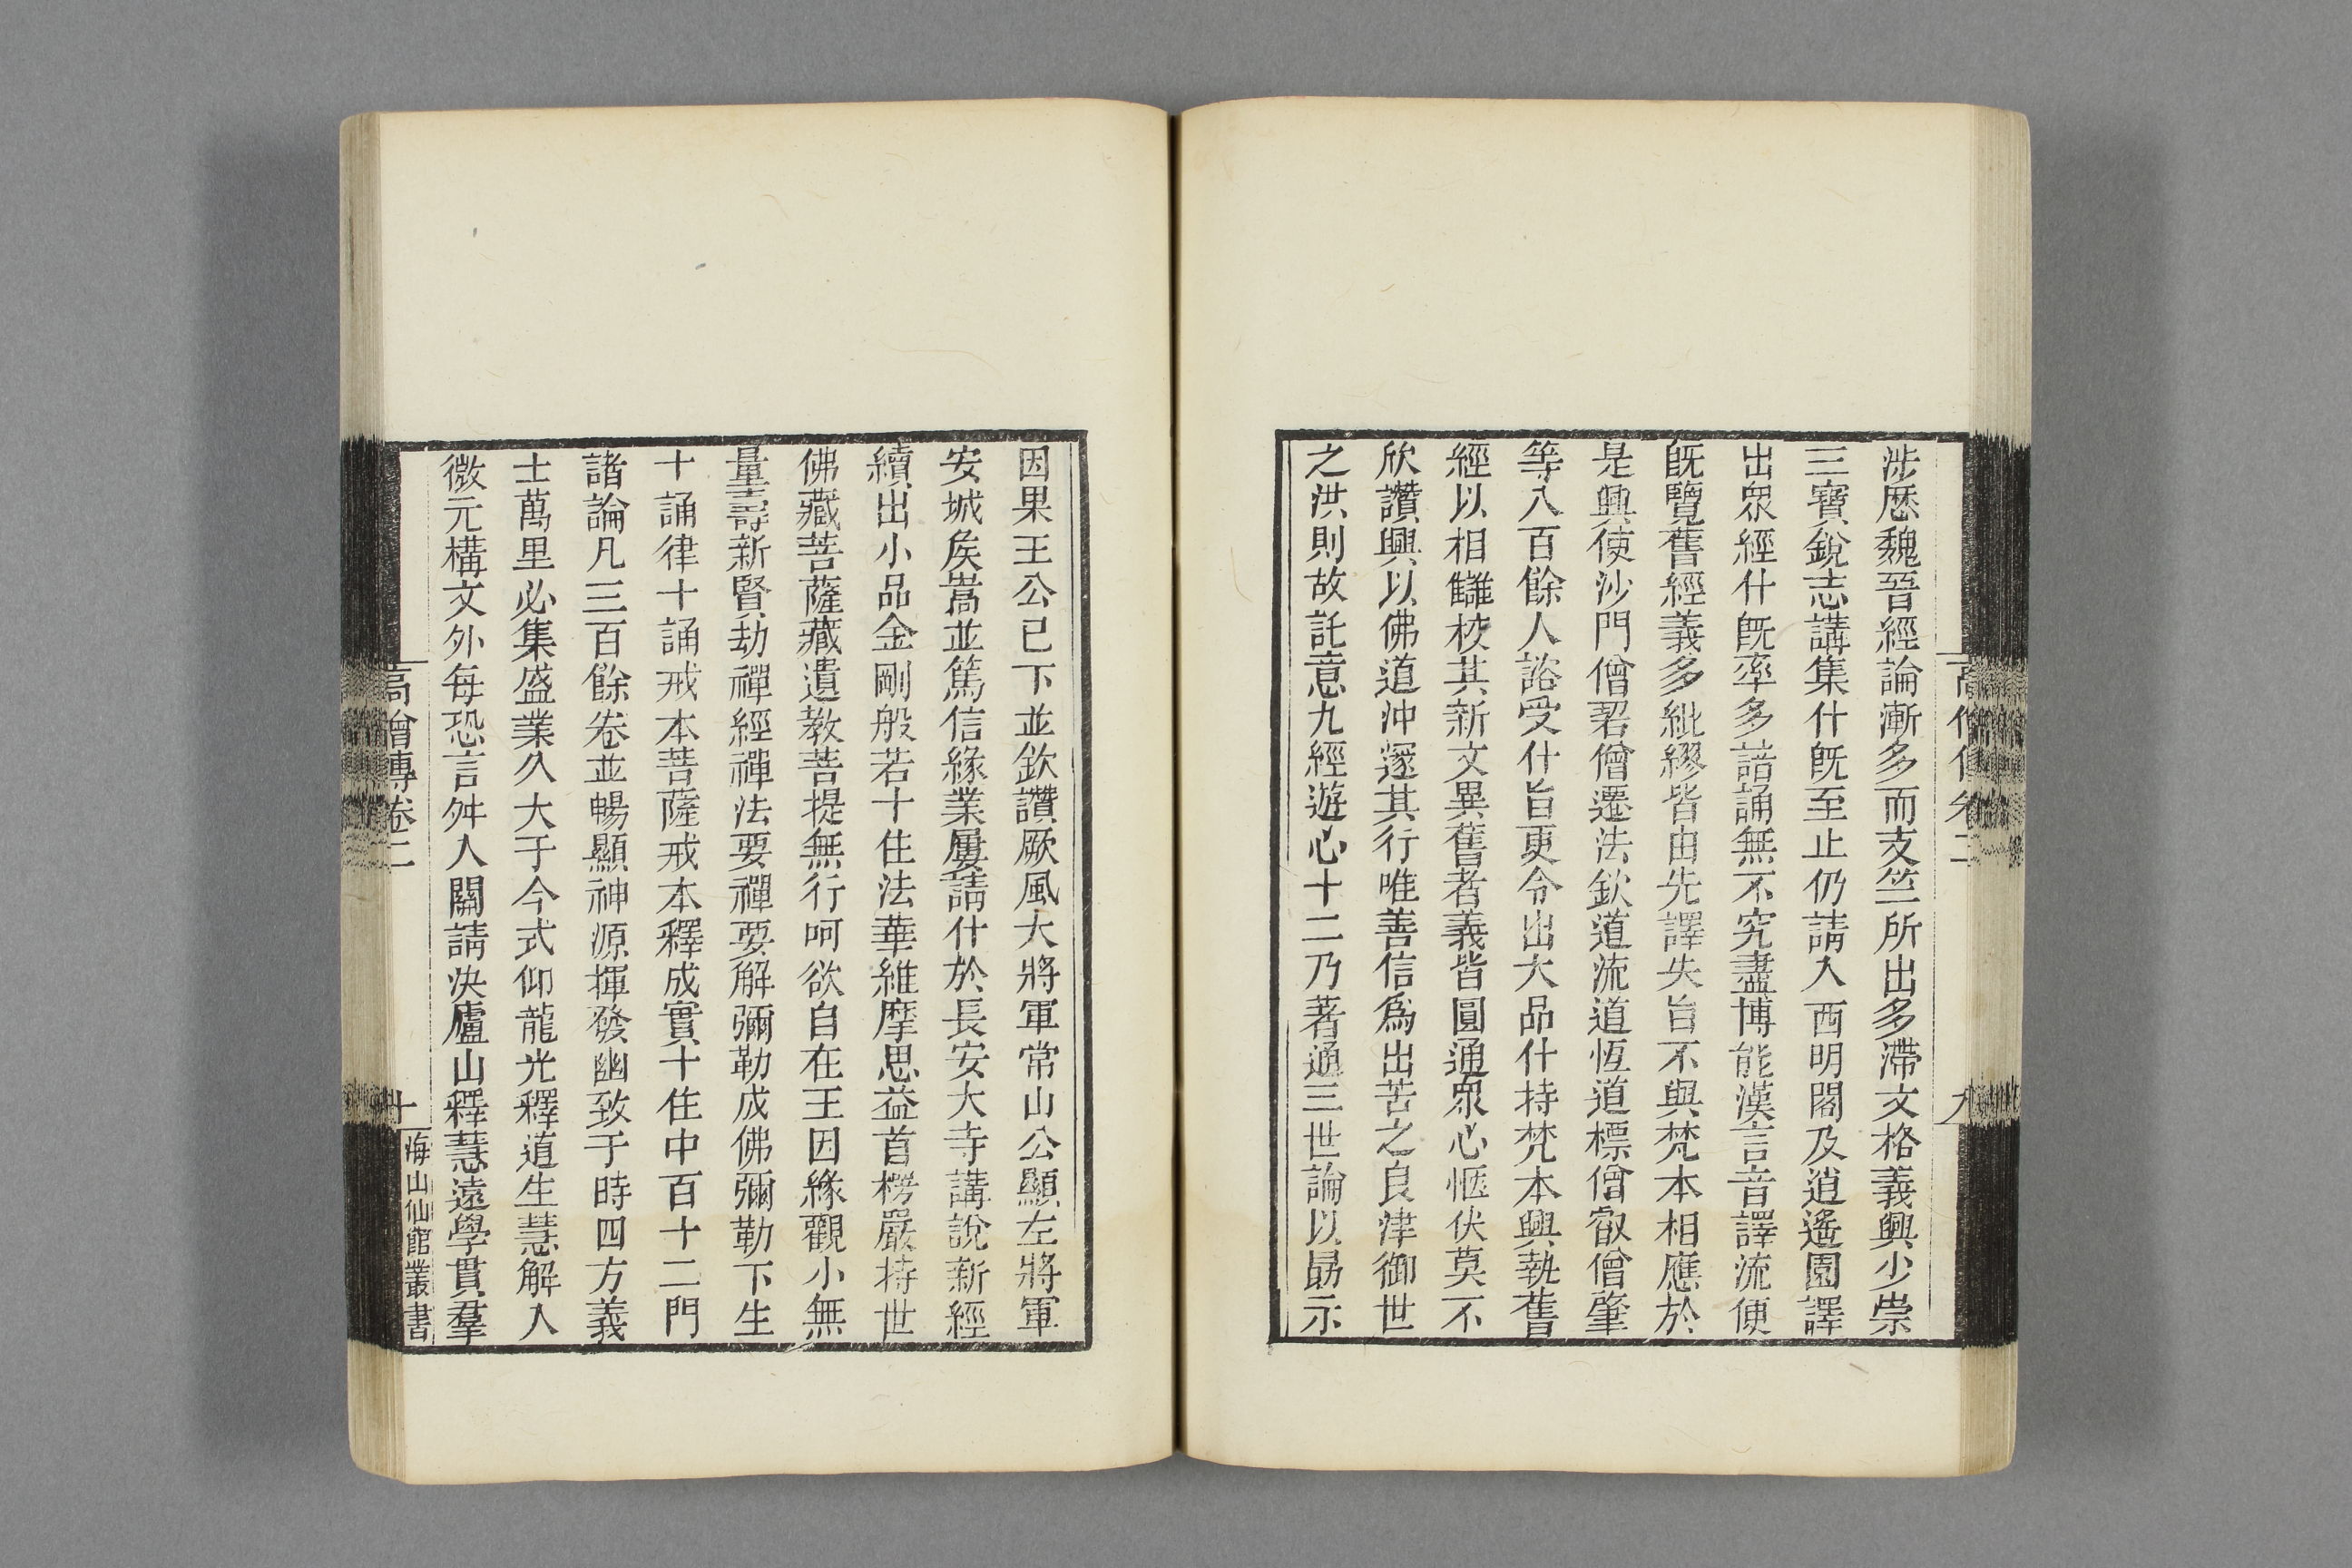 高僧傳卷二
九
涉歷魏晉經論漸多而支竺所出多滯文格義興少崇
三寶銳志講集什旣至止仍請入西明閣及逍遙園譯
出眾經什旣率多諳誦無不究盡博能漢言音譯流便
旣覽舊經義多紕繆皆由先譯失旨不與梵本相應於
是興使沙門僧䂮僧遷法欽道流道恆道標僧叡僧肇
等八百餘人諮受什旨更令出大品什持梵本興執舊
經以相讎校其新文異舊者義皆圓通眾心愜伏莫不
欣讚興以佛道沖邃其行唯善信爲出苦之良津御世
之洪則故託意九經遊心十二乃著通三世論以勗示
因果王公已下並欽讚厥風大將軍常山公顯左將軍
安城矦嵩並篤信緣業屢請什於長安大寺講說新經
續出小品金剛般若十住法華維摩思益首楞嚴持世
佛藏菩薩藏遺教菩提無行呵欲自在王因緣觀小無
量壽新賢劫禪經禪法要禪要解彌勒成佛彌勒下生
十誦律十誦戒本菩薩戒本釋成實十住中百十二門
諸論凡三百餘卷並暢顯神源揮發幽致于時四方義
士萬里必集盛業久大于今式仰龍光釋道生慧解入
微元構文外每恐言舛入關請決廬山釋慧遠學貫羣
高僧傳卷二
十
海山仙館叢書